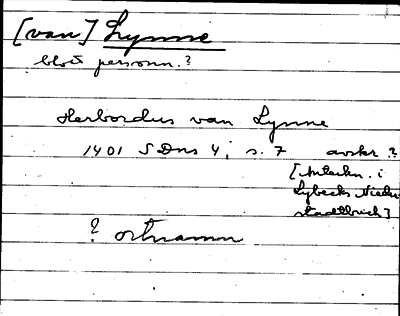 [van] Lynne
blott personn.?
Herbordus van Lynne
1401 SDns 4, s. 7 avskr ?
[Anteckn. i
Lybecks Nieder-
stadtbuch]
? ortnamn